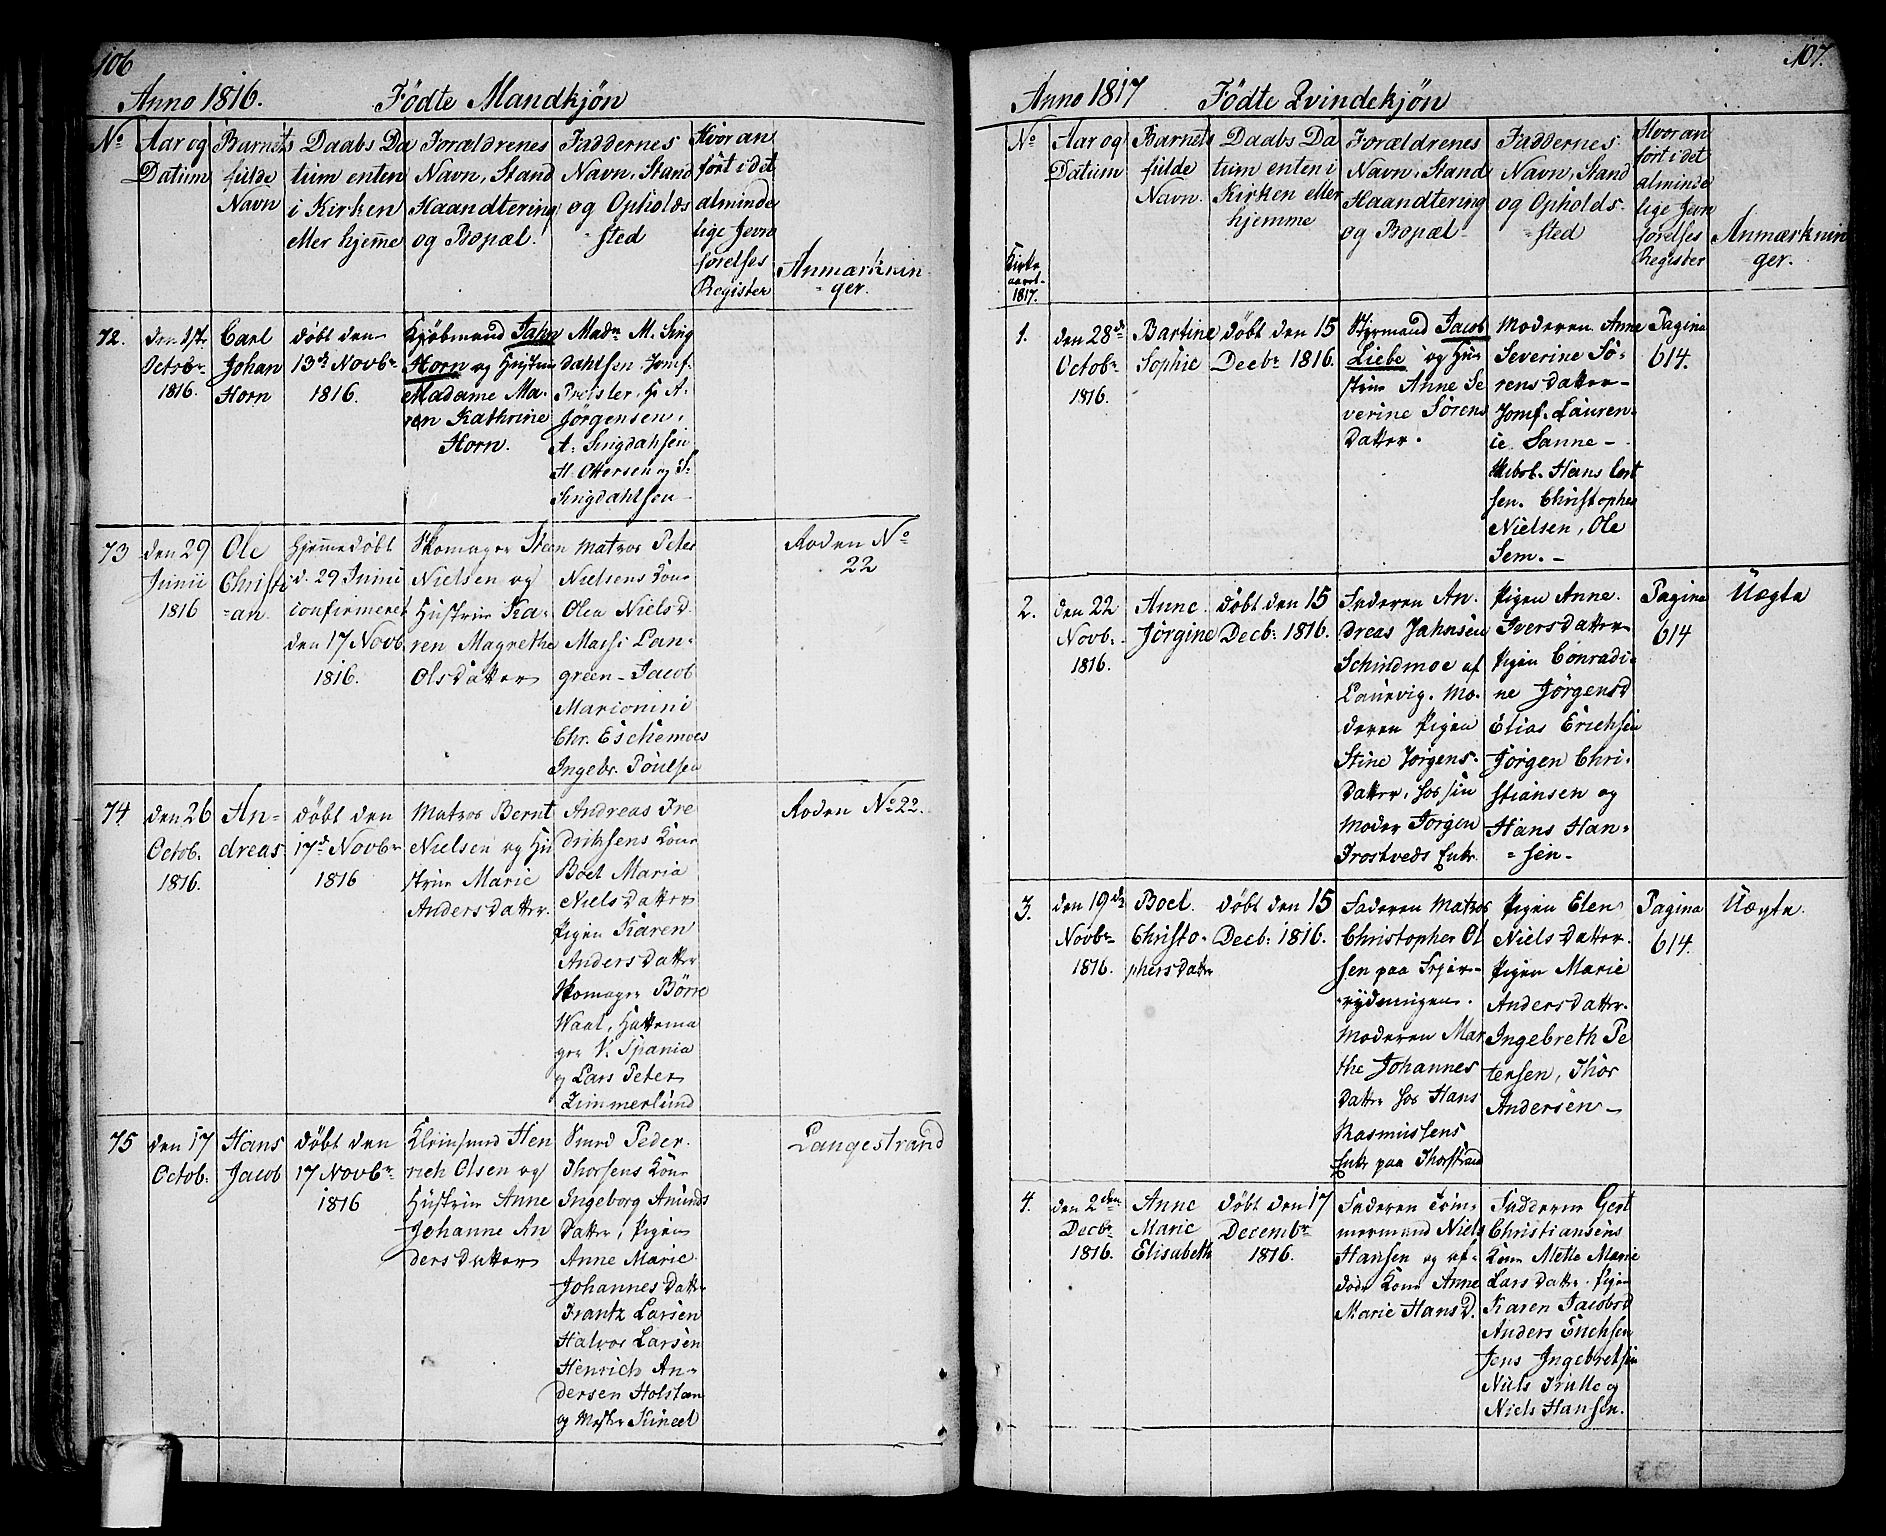 106
Anno 1816. Födte Mandkjön
No
Aar og
Datum
Barnets
fulde
Navn
Daabs Da
tum enten
i Kirken
eller hjemme
Forældrenes
Navn, Stand
Haandtering
og Bopæl.
Faddernes
Navn, Stand
og Opholds
sted
Hvor an
fört i det
alminde
lige Jevn
förelses
Register
Anmærknin
ger.
72.
den 1ste
Octobr
1816.
Carl
Johan
Horn
döbt den
13de Novbr
1816.
Kjöbmand Jahn
Horn og Hustrue
Madame Ma-
ren Kathrine
Horn.
Madm M. Sing
dahlsen Jomf.
Preisler, H A.
Jörgensen,
A. Singdahlsen
H. Ottersen og S.
Singdahlsen
73
den 29
Junii
1816
Ole
Christi
=an.
Hjemmedöbt
d. 29 Junii
confirmeret
den 17 Novb
1816.
Skomager Steen
Nielsen og
Hustrue Ka-
ren Magrethe
Olsdatter
Matros Peter
Nielsens Kone
Olea Nielsd.
Massi Lan-
green - Jacob
Marionini
Chr. Eschemoes
Ingebr. Poulsen
Roden No
22
74
den 26
Octob.
1816.
An-
dreas
döbt den
17d Novbr
1816
Matros Bernt
Nielsen og Hu
strue Marie
Andersdatter.
Andreas Fre
driksens Kone
Boel Maria
Nielsdatter
Pigen Karen
Andersdatter
Skomager Börre
Waal, Hattema
ger V. Spania
og Lars Peter
Zimmerlund
Roden No 22.
75
den 17
Octob:
Hans
Jacob
döbt den
17 Novbr
1816
Kleinsmed Hen
rich Olsen og
Hustrue Anne
Johanne An
dersdatter
Smed Peder
Thorsens Kone
Ingeborg Amunds
datter, Pigen
Anne Marie
Johannesdatter
Frantz Larsen
Halvor Larsen
Henrich An-
dersen Holstan
og Mester Kuneel
Langestrand
107.
Anno 1817 Födte Qvindekjön
No
Kirke
aaret
1817.
Aar og
Datum
Barnets
fulde
Navn.
Daabs Da
tum enten i
Kirken eller
hjemme
Forældrenes
Navn, Stand
Haandtering
og Bopæl
Faddernes
Navn, Stand
og Opholds
=sted
Hvor an
fört i det
alminde
lige Jevn
förelses
Register
Anmærknin
ger.
1.
den 28de
Octobr
1816.
Bartine
Sophie
döbt den 15
Decbr 1816.
Styrmand Jacob
Liebe og Hu
strue Anne Se
verine Sörens
datter.
Moderen Anne
Severine Sö-
rensdatter
Jomf. Lauren-
ie Sanne -
Skibsk. Hans Cort
sen. Christopher
Nielsen, Ole
Sem. -
Pagina
614.
2.
den 22
Novb.
1816.
Anne
Jörgine
döbt den 15
Decb: 1816.
Faderen An
dreas Jahnsen
Schindmoe af
Laurvig. Mo
deren Pigen
Stine Jörgens-
datter, hos sin
Moder Jörgen
Frostveds Enke
Pigen Anne
Iversdatter
Pigen Conradi-
ne Jörgensd
Elias Erichsen
Jörgen Chri-
stiansen og
Hans Han=
=sen -
Pagina
614
Uægte
3.
den 19de
Novbr
1816.
Boel
Christo-
phersdatter
döbt den 15
Decb: 1816.
Faderen Matros
Christopher Ol
sen paa Trjer-
rydningen.
Moderen Mar
the Johannes
datter hos Hans
Rasmussens
Enke paa Thorstrand
Pigen Elen
Nielsdatter.
Pigen Marie
Andersdatter.
Ingebreth Pe
tersen, Thor
Andersen -
Pagina
614.
Uægte.
4.
den 2den
Decbr
1816.
Anne
Marie
Elisabeth
döbt den 17
Decembr
1816.
Faderen Töm
mermand Niels
Hansen og af-
döde Kone Anne
Marie Hansd.
Fadderne Gert
Christiansens
Kone Mette Marie
Larsdatter. Pigen
Karen Jacobsd
Anders Erichsen
Jens Ingebretsen
Niels Trulle og
Niels Hansen.